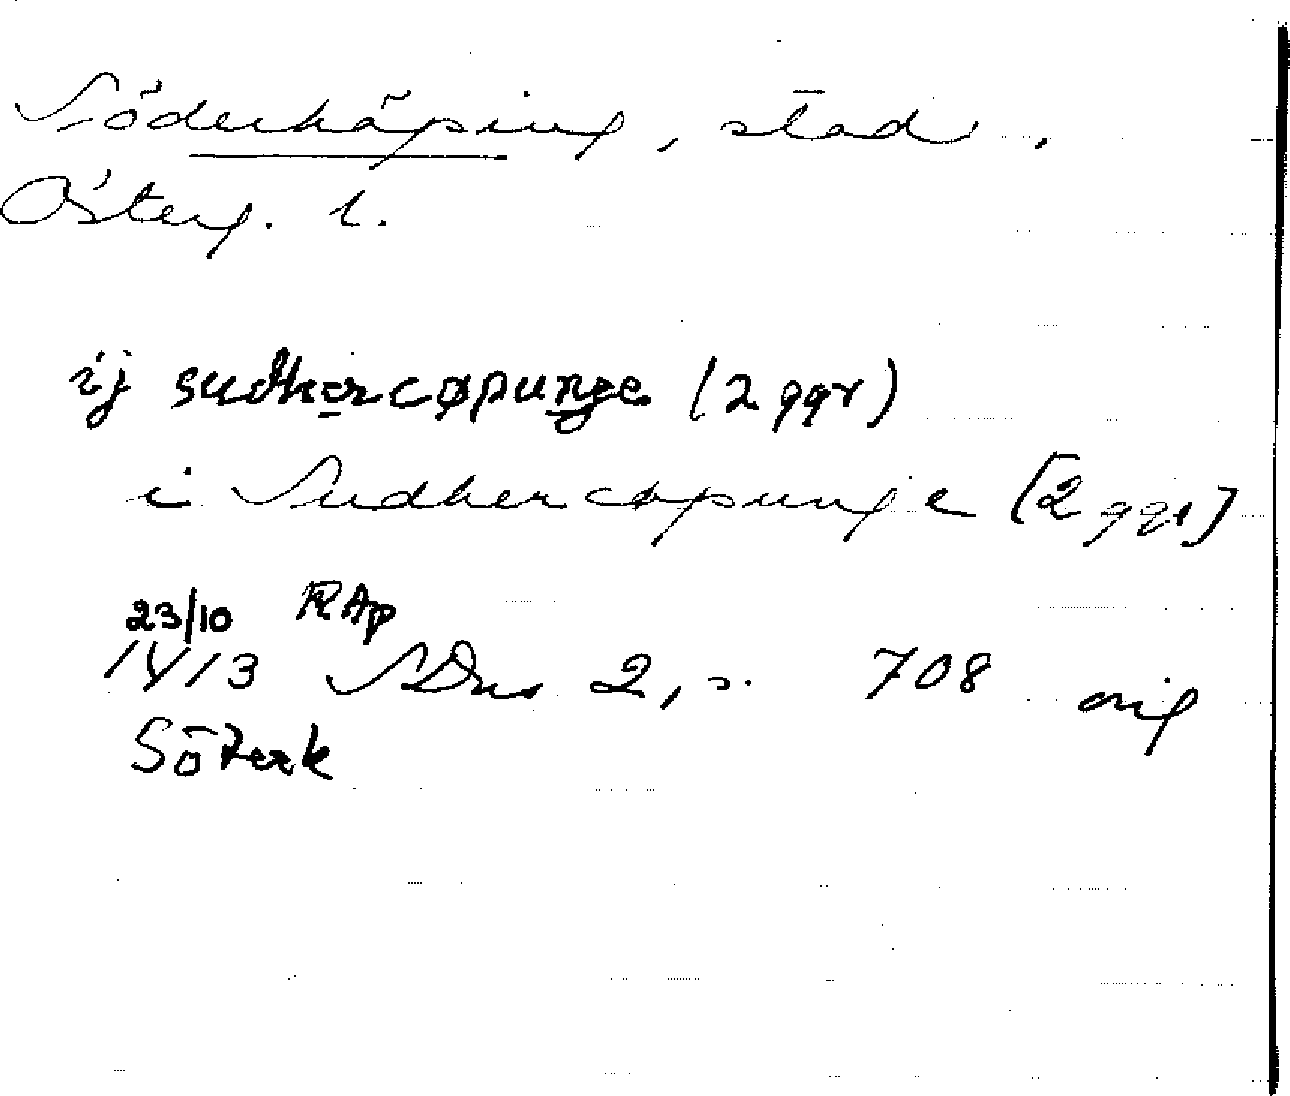 Söderköping, stad,
Österg. l.
ij sudhercøpunge (2 ggr)
i Sudhercøpunge [2 ggr]
23/10 RAp
1413 SDns 2, s. 708 orig
Söderk